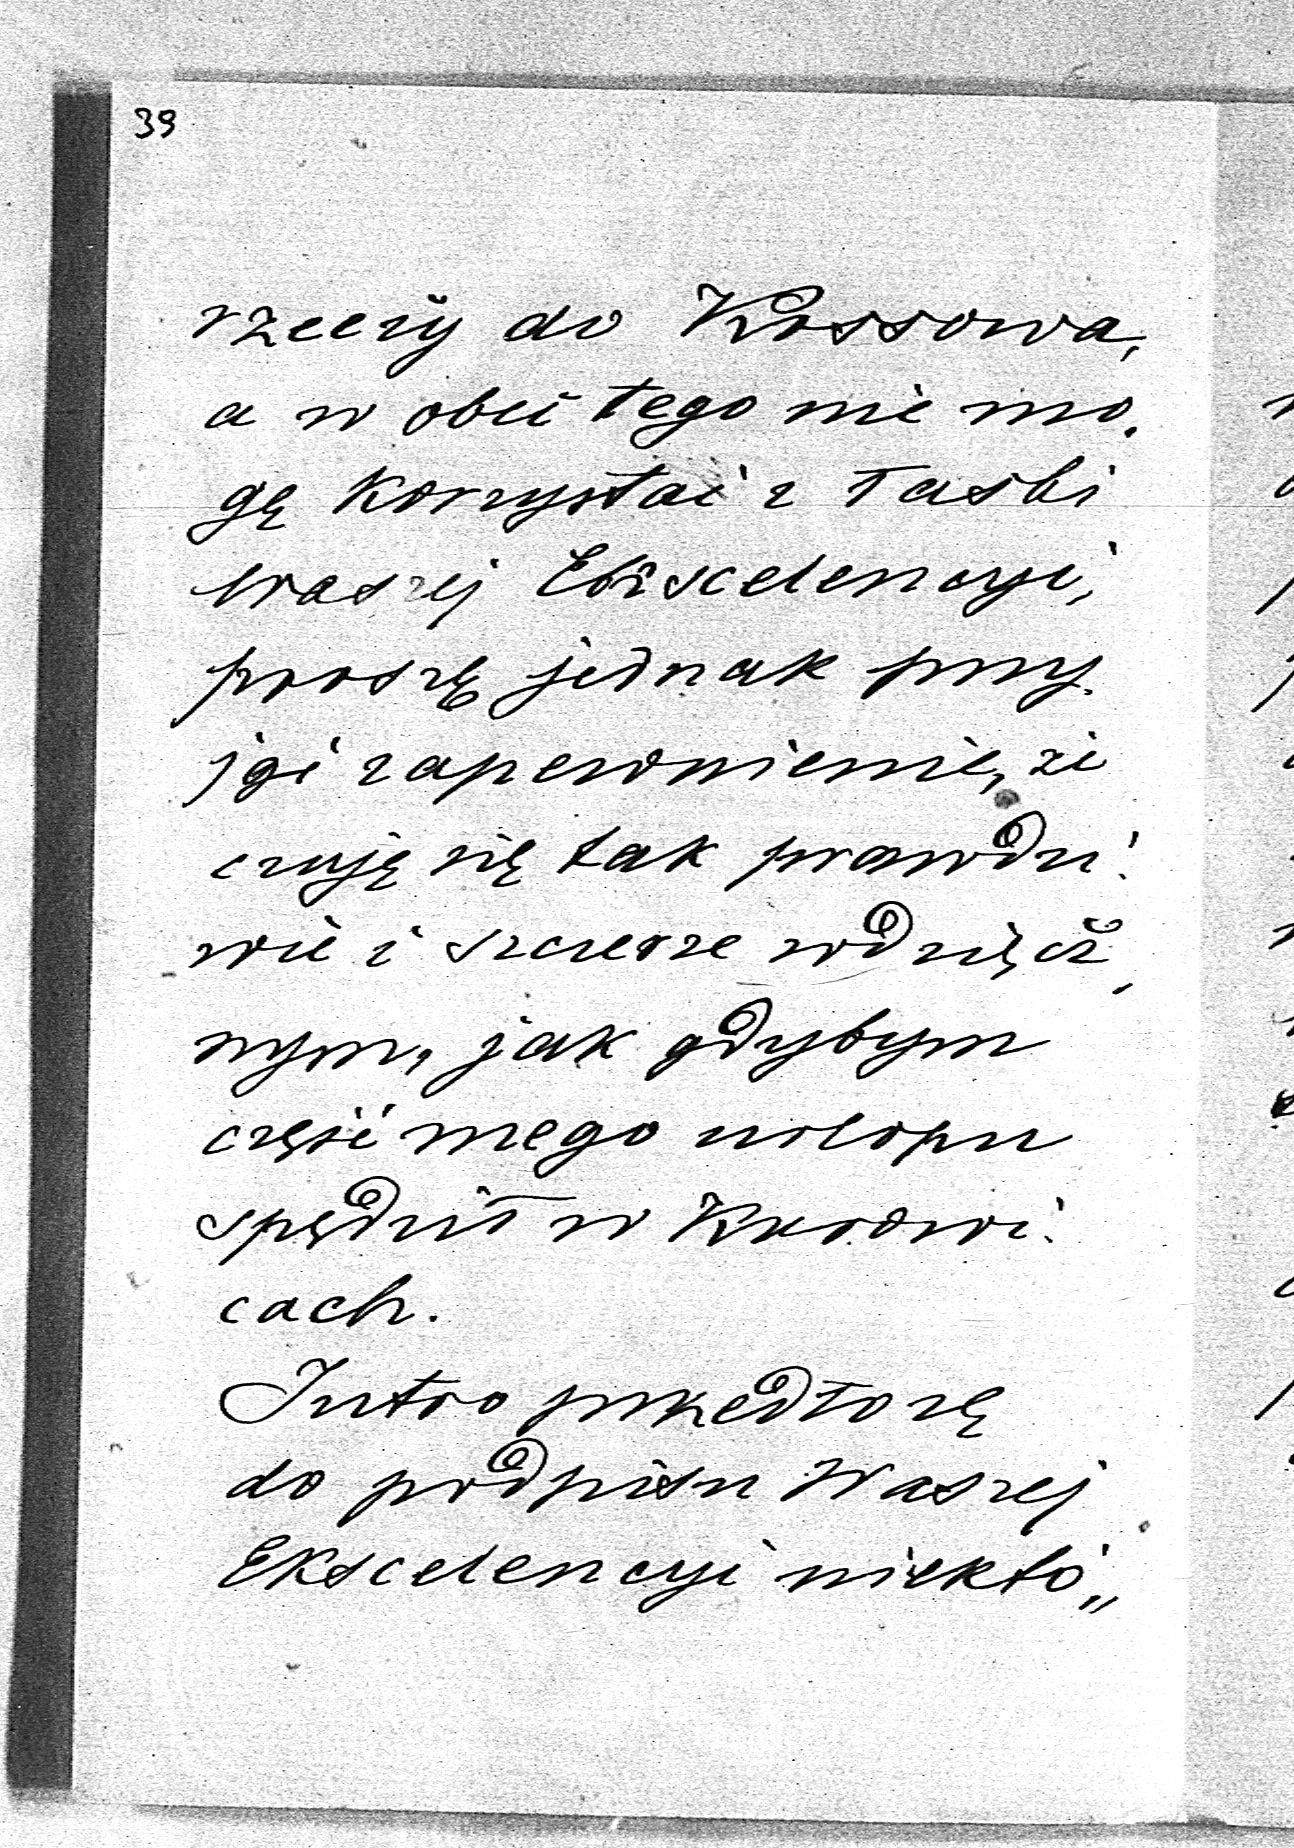 39
rzeczy do Kossowa,
a w obec tego nie mo-
gę korzystać z łaski
Waszej Ekscelencyi,
proszę jednak przy-
jąć zapewnienie, że
czuję się tak prawdzi-
wie i szczerze wdzięcz-
nym, jak gdybym
część mego urlopu
spędził w Kurowi-
cach.
Jutro przedłożę
do podpisu Waszej
Ekscelencyi niektó-